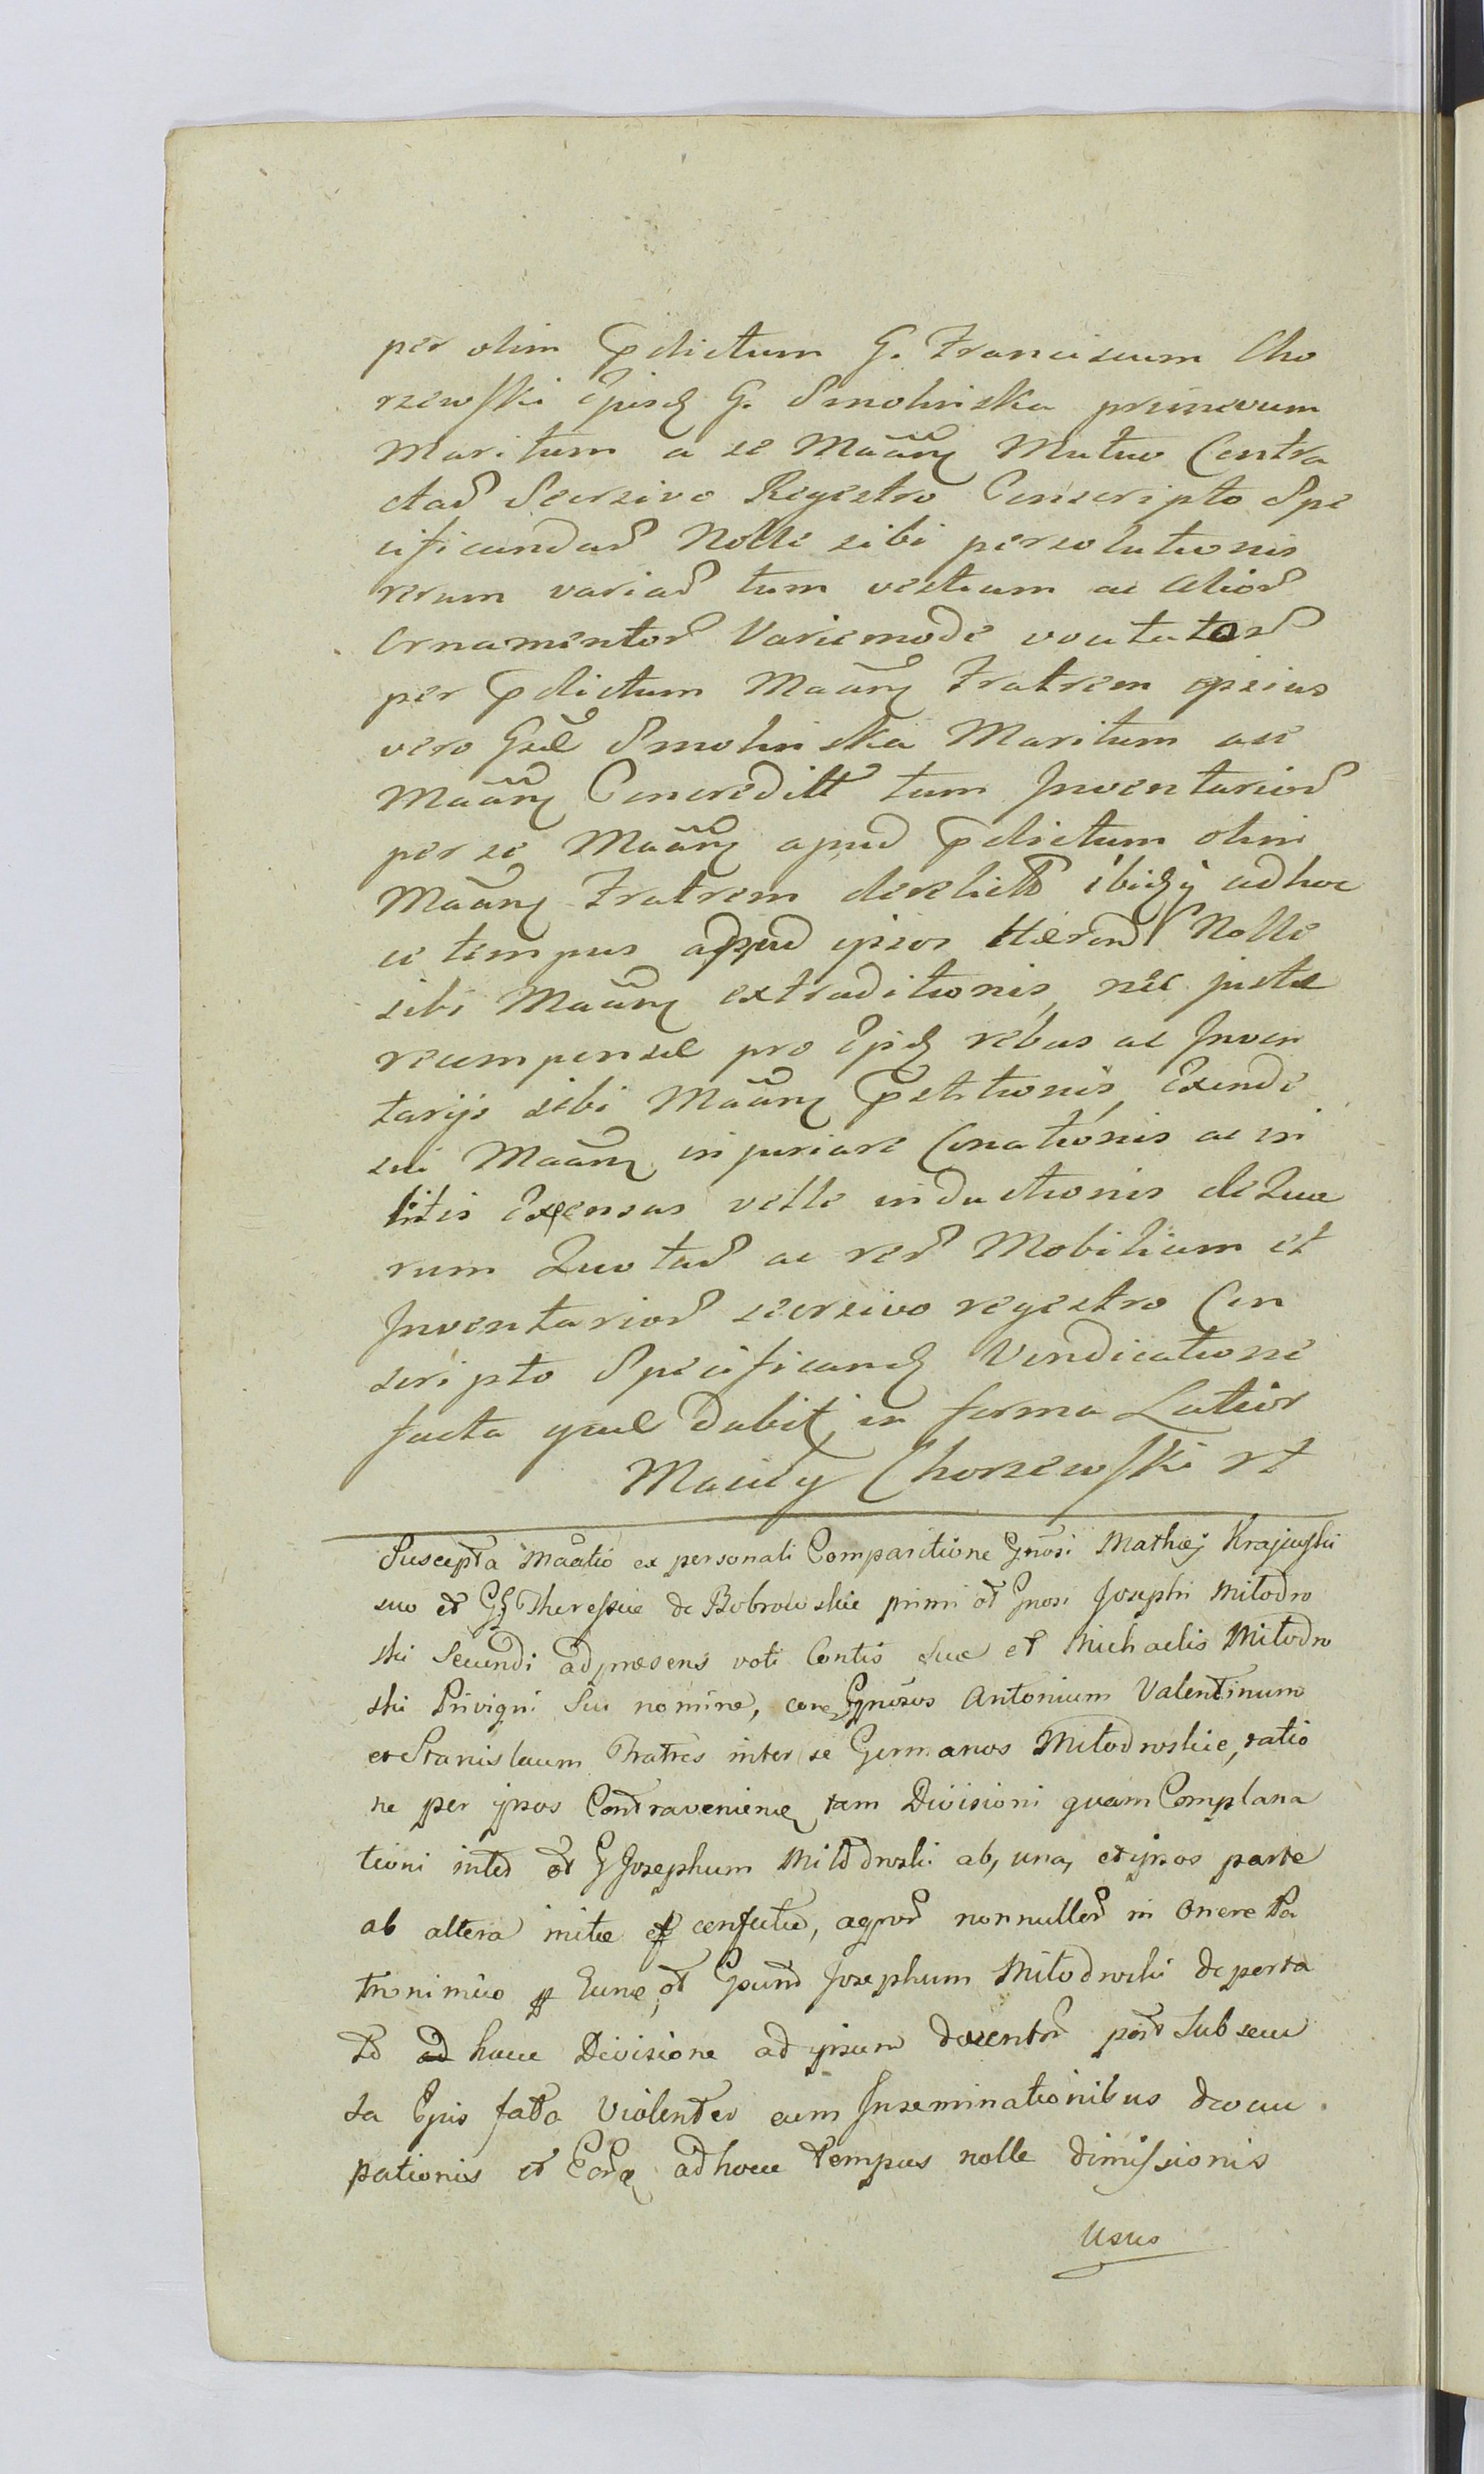 per olim Pdictum G. Franciscum Cho
rzewski Ejusd G. Smolinska primevum
Maritum a se Maanq Mutuo Contra
ctar Seorsivo Regestro Conscripto Spe
cificandar Nolle sibi persolutionis
rerum variar tum vestium ac Alior
Ornamentor Variemode
per Pdictum Maanq Fratrem ipsius
vero Gsæ Smolinska Maritum ac
Maanq Concreditt tum Inventarior
per se Maanq apud Pdictum olim
Maanq Fratrem derelictt ibidq adhoc
ce tempus appud ipsos Hæred Nolle
sibi Maanq extraditionis, nec justæ
recompensæ pro Ejusd rebus ac Inven
tarijs sibi Maanq Pstitionis, Exinde
sui Maanq injuriare Conationis ac in
litis Expensas velle inductionis de Qua
rum Quotar ac rer Mobilium et
Inventarior seorsivo regestro Con
scripto Specificand Vindicatione
facta quæ Dabit in forma Latior
Maciey Chorzewski
Suscepta Maatio ex personali Comparitione Gnosi Mathæj Krajewski
suo et Gsq Theressiæ de Bobrowskie primi et Gnosi Josephi Mitodro
ski Secundi ad præsens voti Contis suæ et Michaelis Mitodro
ski Privigni Sui nomine, con Gnosos Antonium Valentinum
et Stanislaum Fratres inter se Germanos Mitodroskie, ratio
ne per ipsos Contraveniend tam Divisioni quam Complana
tioni inter et G Josephum Mitodroski ab, una, et ipsos parte
ab altera initæ confectæ, agror nonnullor in Onere Pa
tronimico et Gsum Josephum Mitodroski deporta
to ad hucce Divisione ad ipsum post subsecu
ta Ejus fata Violenter cum Inseminationibus deoccu
pationis et adhocce tempus nolle dimissionis
Usus